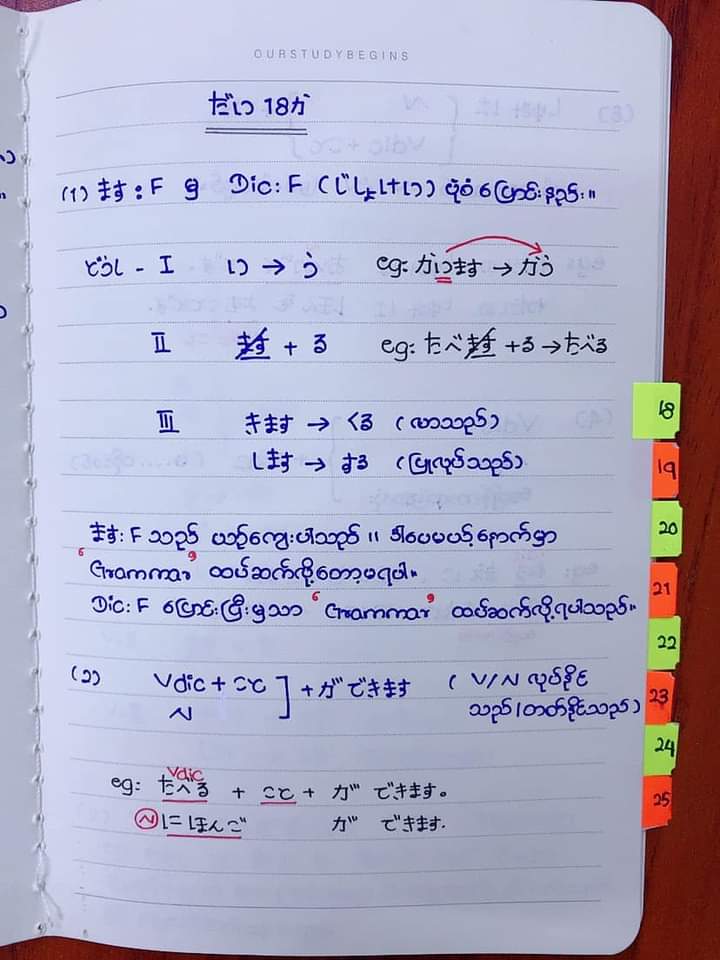 OURSTUDYBEGINS
だい 18か
(၁) ます : F မှ Dic: F (じしょけい) ပုံစံ ပြောင်းနည်း။
どうし - I い → う eg: かいます → かう
II ます + る eg: たべます + る → たべる
III きます → くる (လာသည်)
します → する (ပြုလုပ်သည်)
ます: F သည် ယဉ်ကျေးပါသည် ။ ဒါပေမယ့် နောက်မှာ
"Grammar" ထပ်ဆက်လို့တော့မရပါ။
Dic: F ပြောင်းပြီးမှသာ "Grammar" ထပ်ဆက်လို့ရပါသည်။
(၁) Vdic + こと ] + が できます ( V/N လုပ်နိုင်
N သည်/တတ်နိုင်သည်)
Vdic
eg: たべる + こと + が できます。
N にほんご が できます.
18
19
20
21
22
23
24
25